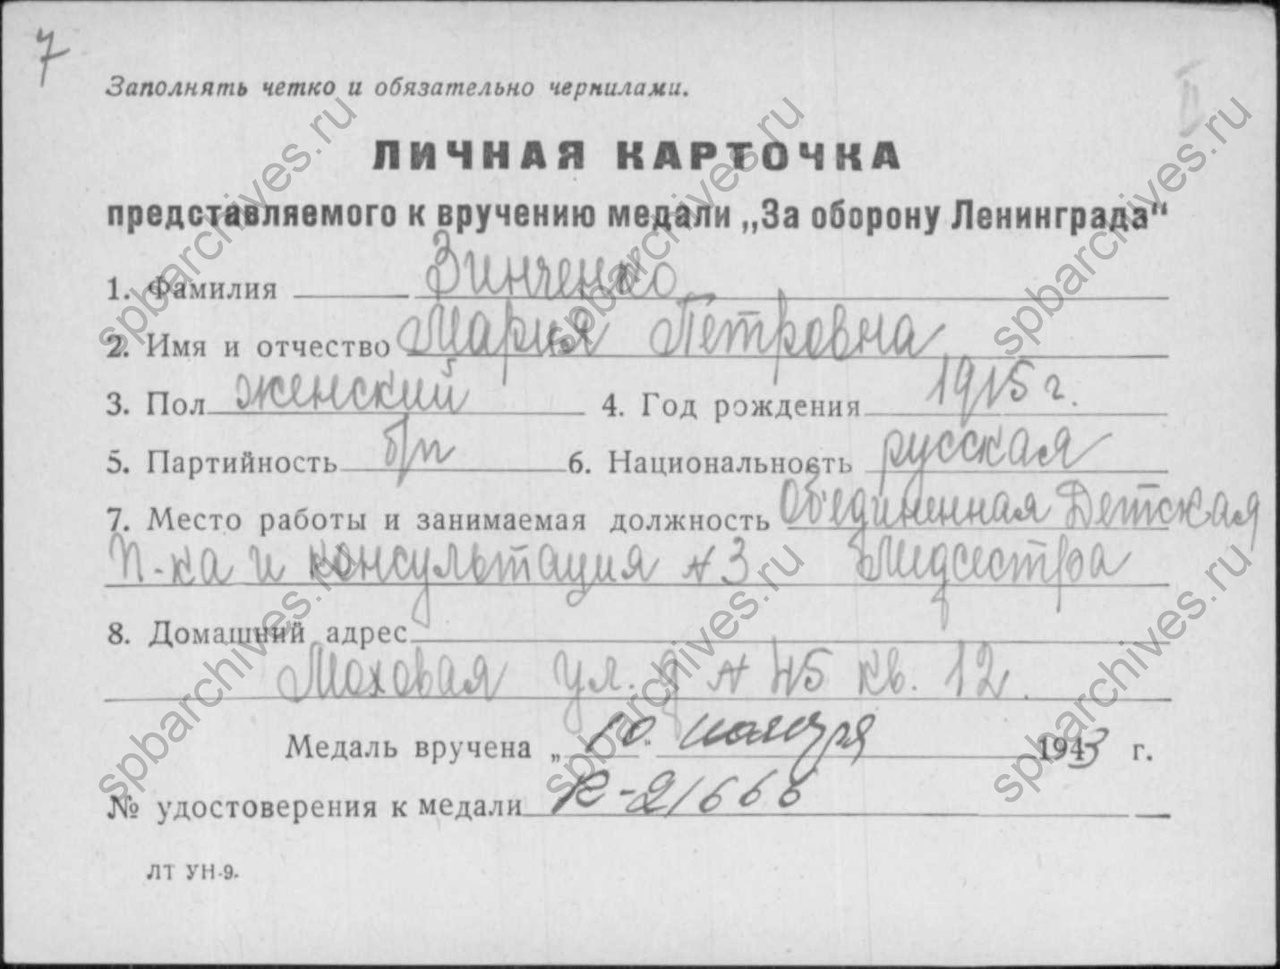 7
Заполнять четко и обязательно чернилами.
II
ЛИЧНАЯ КАРТОЧКА
представляемого к вручению медали „За оборону Ленинграда"
1. Фамилия Зинченко
2. Имя и отчество Мария Петровна
3. Пол женский 4. Год рождения 1915 г.
5. Партийность б/п 6. Национальность русская
7. Место работы и занимаемая должность Об'единенная Детская
п-ка и консультация № 3 Медсестра
8. Домашний адрес
Моховая ул. д № 45 кв. 12.
Медаль вручена „10. ноября 1943 г.
№ удостоверения к медали К-21666
ЛТ УН-9.
spbarchives.ru
spbarchives.ru
spbarchives.ru
spbarchives.ru
spbarchives.ru
spbarchives.ru